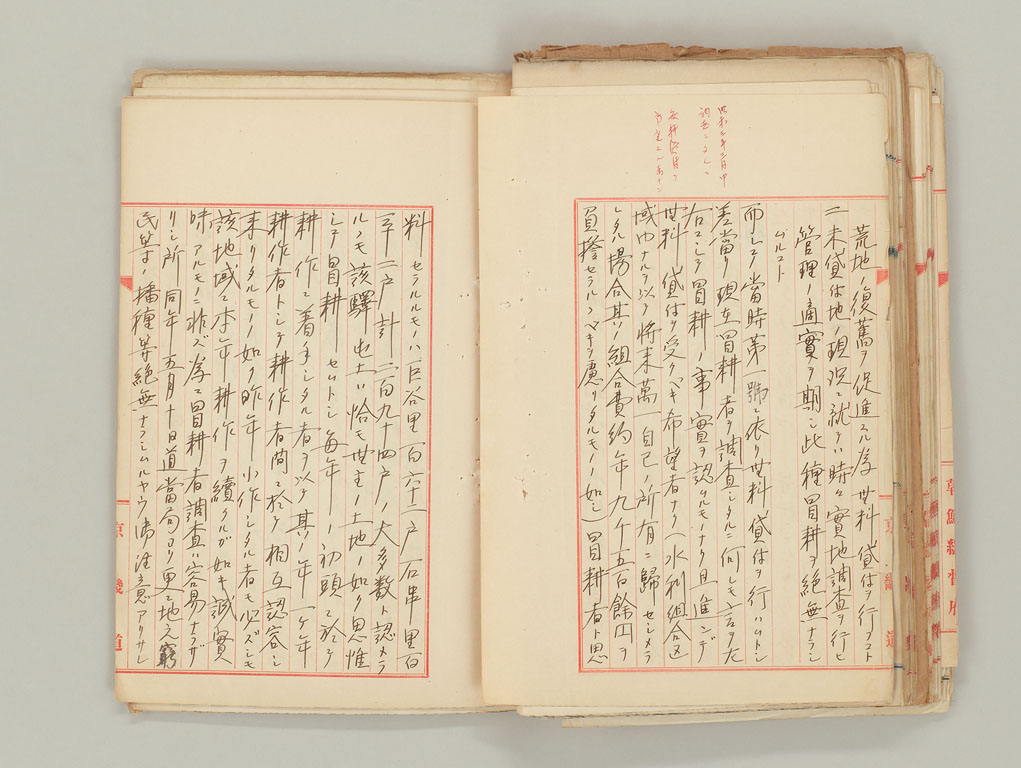 荒地ノ復舊ヲ促進スル為無料貸付ヲ行フコト
二 未貸付地ノ現況ニ就テハ時々實地調査ヲ行ヒ
管理ノ適實ヲ期シ此種冒耕ヲ絶無ナラシ
ムルコト
而シテ當時第一號ニ依リ無料貸付ヲ行ハムトシ
差當リ現在冒耕者ヲ調査シタルニ何レモ言ヲ左
右ニシテ冒耕ノ事實ヲ認ムルモノナク且進ンデ
無料貸付ヲ受クベキ希望者ナク(水利組合区
域内ナルヲ以テ將来萬一自己ノ所有ニ歸セシメラ
レタル場合其ノ組合費約年九千五百餘円ヲ
負擔セラルベキヲ慮リタルモノノ如シ)冒耕者ト思
料セラルルモノハ巨谷里百六十二戸石串里百
三十二戸計二百九十四戸ノ大多数ト認メラ
ルルモ該驛屯土ハ恰モ無主ノ土地ノ如ク思惟
シテ冒耕セムトシ毎年ノ初頭ニ於テ
耕作ニ着手シタル者ヲ以テ其ノ年一ケ年
耕作者トシテ耕作者間ニ於テ相互認容シ
来リタルモノノ如ク昨年小作シタル者モ必ズシモ
該地域ニ本年耕作ヲ續クルガ如キ誠實
味アルモノニ非ズ為ニ冒耕者調査ハ容易ナラザ
リシ所同年五月十日道當局ヨリ更ニ地元窮
民等ノ播種等絶無ナラシムルヤウ御注意アリタルシ
京畿道
朝鮮總督府